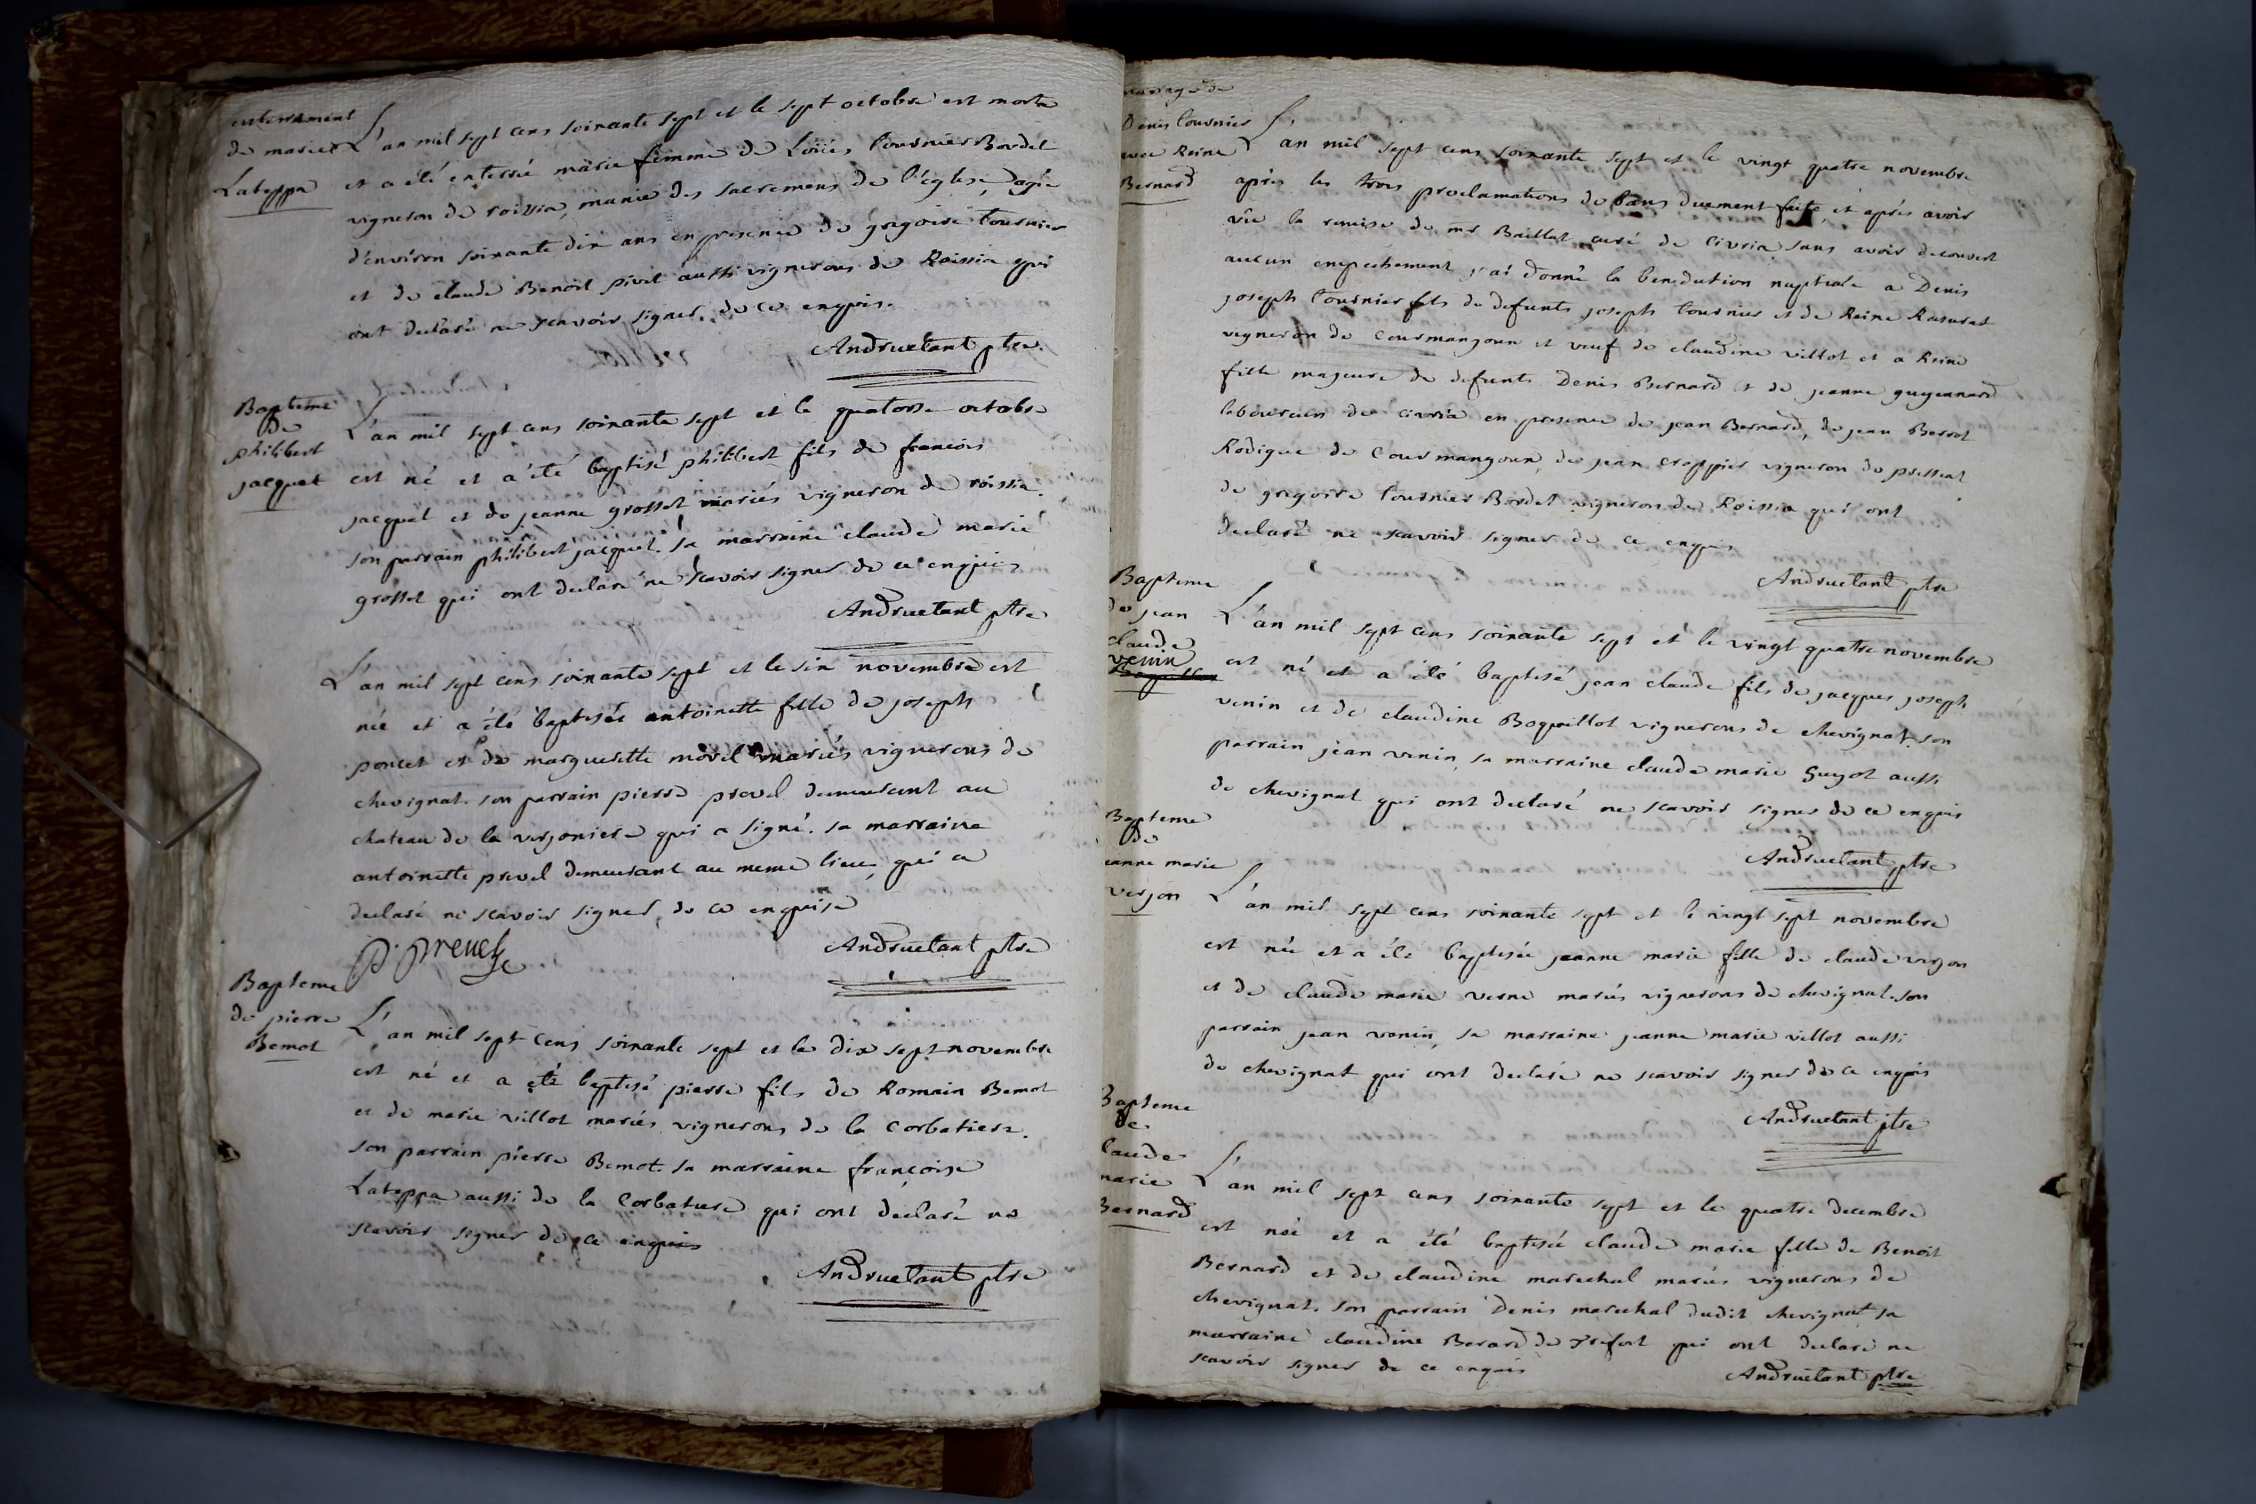 enterrement
de marie
Lateppa
L'an mil sept cens soixante sept et le sept octobre est morte
et a été enterré marie femme de Loüis tournier Bordet
vigneron de roissia, munie des sacremens de l'église, agée
d'environ soixante dix ans en presence de gregoire tournier
et de claude Benoit pivet aussi vignerons de Roissia qui
ont declaré ne scavoir signer, de ce enquis.
Andruetant ptre.
Bapteme
de
philibert
jacquet
L'an mil sept cens soixante sept et le quatorse octobre
est né et a été baptisé philibert fils de francois
jacquet et de jeanne grosset mariés vigneron de roissia.
son parrain philibert jacquet. sa marraine claude marie
grosset qui ont declaré ne scavoir signer de ce enquis
Andruetant ptre
L'an mil sept cens soixante sept et le six novembre est
née et a été baptisée antoinette fille de joseph
poncet et de margueritte morel mariés vignerons de
chevignat. son parrain pierre prevel demeurant au
chateau de la verjoniere qui a signé. sa marraine
antoinette prevel demeurant au meme lieu, qui a
declaré ne scavoir signer, de ce enquise
Andruetant ptre
Bapteme
de pierre
Bemot
L'an mil sept cens soixante sept et le dix sept novembre
est né et a été baptisé pierre fils de Romain Bemot
et de marie villot mariés vignerons de la Corbatiere.
son parrain pierre Bemot. sa marraine françoise
Lateppa aussi de la Corbatiere qui ont declaré ne
scavoir signer de ce enquis
Andruetant ptre
mariage de
Denis tournier
avec Reine
Bernard
L'an mil sept cens soixante sept et le vingt quatre novembre
après les trois proclamations de bans duement faite, et après avoir
vüe la remise de mr Baillat curé de Civria sans avoir decouvert
aucun empechement j'ai donné la benediction nuptiale a Denis
joseph tournier fils de defunts joseph tournier et de Reine
vigneron de Courmangoux et veuf de claudine villot et a Reine
fille majeure de defunts Denis Bernard et de jeanne guyennard
laboureurs de civria en presence de jean Bernard, de jean Berrot
Rodigue de Courmangoux, de jean croppier vigneron de pressiat
de gregoire tournier Bordet vigneron de Roissia qui ont
declaré ne scavoir signer de ce enquis
Andruetant ptre
Bapteme
de jean
claude
venin
L'an mil sept cens soixante sept et le vingt quatre novembre
est né et a été baptisé jean claude fils de jacques joseph
venin et de claudine Boquillot vignerons de chevignat. son
parrain jean venin, sa marraine claude marie Guyot aussi
de chevignat qui ont declaré ne scavoir signer de ce enquis
Andruetant ptre
Bapteme
de
jeanne marie
verjon
L'an mil sept cens soixante sept et le vingt sept novembre
est née et a été baptisée jeanne marie fille de claude verjon
et de claude marie verne mariés vignerons de chevignat. son
parrain jean venin, sa marraine jeanne marie villot aussi
de chevignat qui ont declaré ne scavoir signer de ce enquis
Andruetant ptre
Bapteme
de
claude
marie
Bernard
L'an mil sept cens soixante sept et le quatre decembre
est née et a été baptisée claude marie fille de Benoit
Bernard et de claudine marechal mariés vignerons de
chevignat. son parrain Denis marechal dudit chevignat, sa
marraine claudine Berard de trefort qui ont declaré ne
scavoir signer de ce enquis
Andruetant ptre